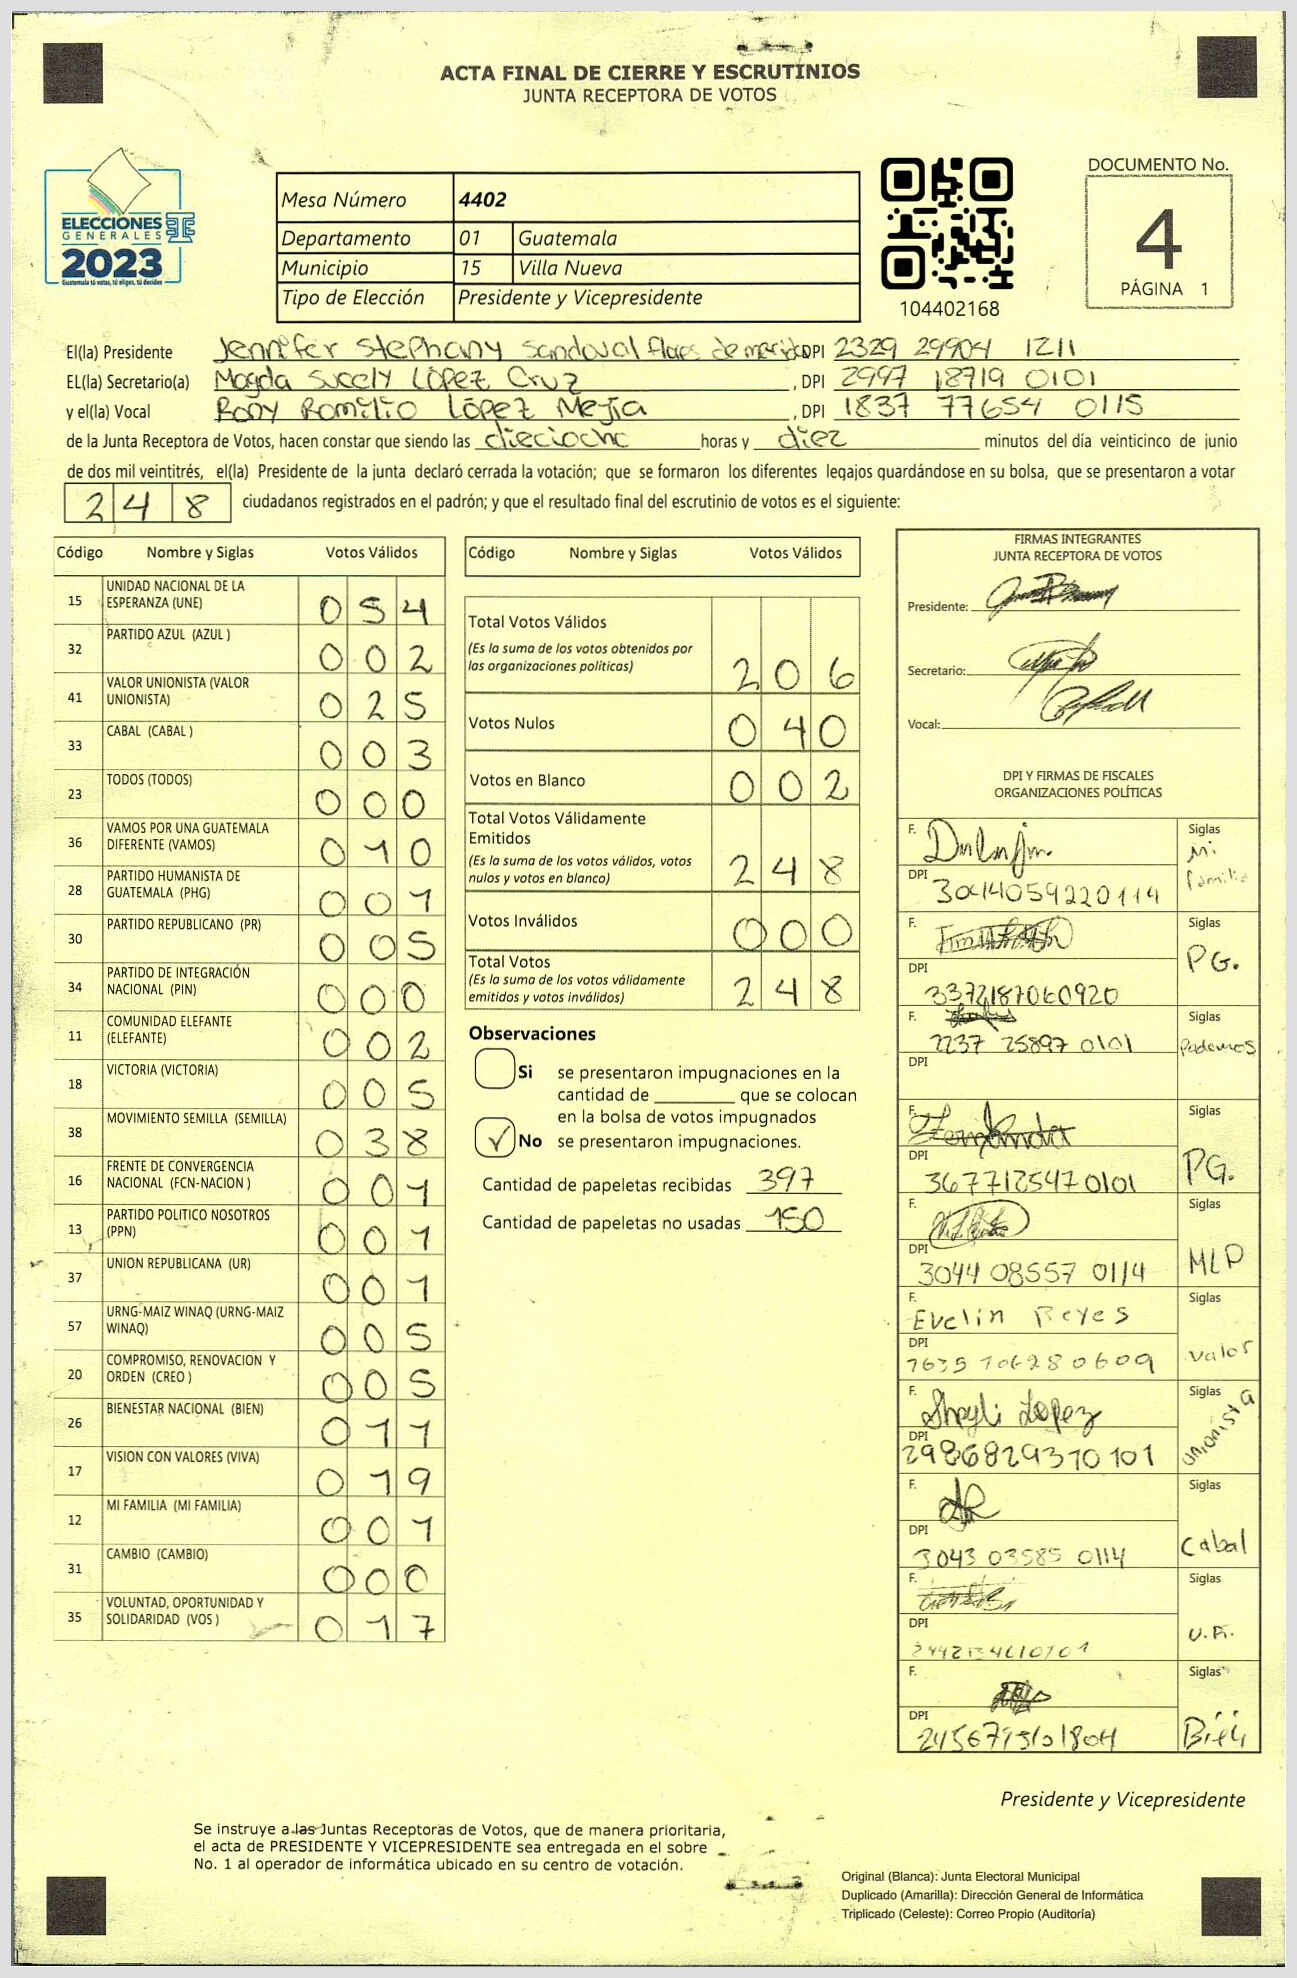 ACTA FINAL DE CIERRE Y ESCRUTINIOS
JUNTA RECEPTORA DE VOTOS
ELECCIONES
GENERALES
2023
Guatemala tú votas, tú eliges, tú decides
Mesa Número 4402
Departamento 01 Guatemala
Municipio 15 Villa Nueva
Tipo de Elección Presidente y Vicepresidente
104402168
DOCUMENTO No.
4
PÁGINA 1
El(la) Presidente Jennifer Stephany Sandoval Flores de DPI 2329 29904 1211
EL(la) Secretario(a) Magda Sucely López Cruz , DPI 2997 18719 0101
y el(la) Vocal Rony Romilio López Mejia , DPI 1837 77654 0115
de la Junta Receptora de Votos, hacen constar que siendo las dieciocho horas y diez minutos del día veinticinco de junio
de dos mil veintitrés, el(la) Presidente de la junta declaró cerrada la votación; que se formaron los diferentes legajos guardándose en su bolsa, que se presentaron a votar
248 ciudadanos registrados en el padrón; y que el resultado final del escrutinio de votos es el siguiente:
Código Nombre y Siglas Votos Válidos
15 UNIDAD NACIONAL DE LA ESPERANZA (UNE) 054
32 PARTIDO AZUL (AZUL ) 002
41 VALOR UNIONISTA (VALOR UNIONISTA) 025
33 CABAL (CABAL ) 003
23 TODOS (TODOS) 000
36 VAMOS POR UNA GUATEMALA DIFERENTE (VAMOS) 010
28 PARTIDO HUMANISTA DE GUATEMALA (PHG) 001
30 PARTIDO REPUBLICANO (PR) 005
34 PARTIDO DE INTEGRACIÓN NACIONAL (PIN) 000
11 COMUNIDAD ELEFANTE (ELEFANTE) 002
18 VICTORIA (VICTORIA) 005
38 MOVIMIENTO SEMILLA (SEMILLA) 038
16 FRENTE DE CONVERGENCIA NACIONAL (FCN-NACION ) 001
13 PARTIDO POLITICO NOSOTROS (PPN) 001
37 UNION REPUBLICANA (UR) 001
57 URNG-MAIZ WINAQ (URNG-MAIZ WINAQ) 005
20 COMPROMISO, RENOVACION Y ORDEN (CREO ) 005
26 BIENESTAR NACIONAL (BIEN) 011
17 VISION CON VALORES (VIVA) 019
12 MI FAMILIA (MI FAMILIA) 001
31 CAMBIO (CAMBIO) 000
35 VOLUNTAD, OPORTUNIDAD Y SOLIDARIDAD (VOS ) 017
Código Nombre y Siglas Votos Válidos
Total Votos Válidos 206
(Es la suma de los votos obtenidos por
las organizaciones políticas)
Votos Nulos 040
Votos en Blanco 002
Total Votos Válidamente
Emitidos 248
(Es la suma de los votos válidos, votos
nulos y votos en blanco)
Votos Inválidos 000
Total Votos 248
(Es la suma de los votos válidamente
emitidos y votos inválidos)
Observaciones
Si se presentaron impugnaciones en la
cantidad de ________ que se colocan
en la bolsa de votos impugnados
✓ No se presentaron impugnaciones.
Cantidad de papeletas recibidas 397
Cantidad de papeletas no usadas 150
FIRMAS INTEGRANTES
JUNTA RECEPTORA DE VOTOS
Presidente:
Secretario:
Vocal:
DPI Y FIRMAS DE FISCALES
ORGANIZACIONES POLÍTICAS
F. Siglas Mi familia
DPI 3044059220114
F. Siglas PG.
DPI 3372187060920
F. Siglas Podemos
2237 25897 0101
DPI
F. Siglas PG.
DPI 3677125470101
F. Siglas MLP
DPI 3044 08557 0114
F. Evelin Reyes Siglas Valor
DPI 7635706280609
F. Sheyli Lopez Siglas Unionista
DPI 2986829370101
F. Siglas Cabal
DPI 3043 03585 0114
F. Siglas
DPI
F. Siglas
DPI
Presidente y Vicepresidente
Se instruye a las Juntas Receptoras de Votos, que de manera prioritaria,
el acta de PRESIDENTE Y VICEPRESIDENTE sea entregada en el sobre
No. 1 al operador de informática ubicado en su centro de votación.
Original (Blanca): Junta Electoral Municipal
Duplicado (Amarilla): Dirección General de Informática
Triplicado (Celeste): Correo Propio (Auditoría)